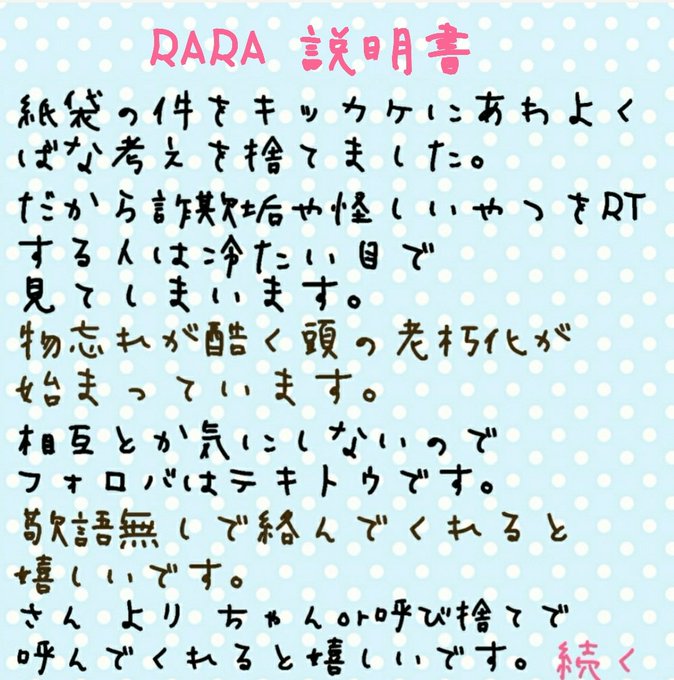 RARA 説明書
紙袋の件をキッカケにあわよく
ばな考えを捨てました。
だから詐欺垢や怪しいやつをRT
する人は冷たい目で
見てしまいます。
物忘れが酷く頭の老朽化が
始まっています。
相互とか気にしないので
フォロバはテキトウです。
敬語無しで絡んでくれると
嬉しいです。
さん より ちゃんor呼び捨てで
呼んでくれると嬉しいです。 続く